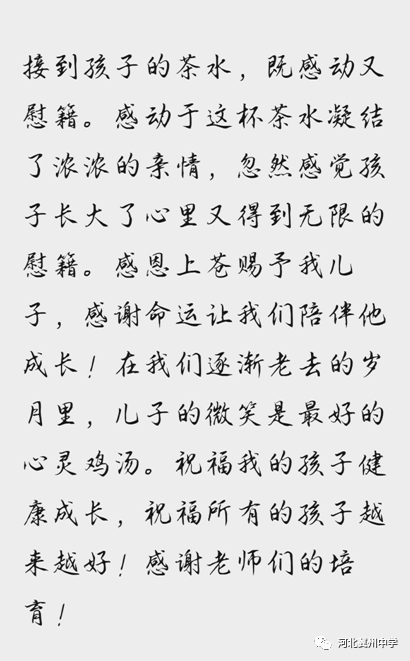 接到孩子的茶水，既感动又
慰籍。感动于这杯茶水凝结
了浓浓的亲情，忽然感觉孩
子长大了心里又得到无限的
慰籍。感恩上苍赐予我儿
子，感谢命运让我们陪伴他
成长！在我们逐渐老去的岁
月里，儿子的微笑是最好的
心灵鸡汤。祝福我的孩子健
康成长，祝福所有的孩子越
来越好！感谢老师们的培
育！
河北冀州中学